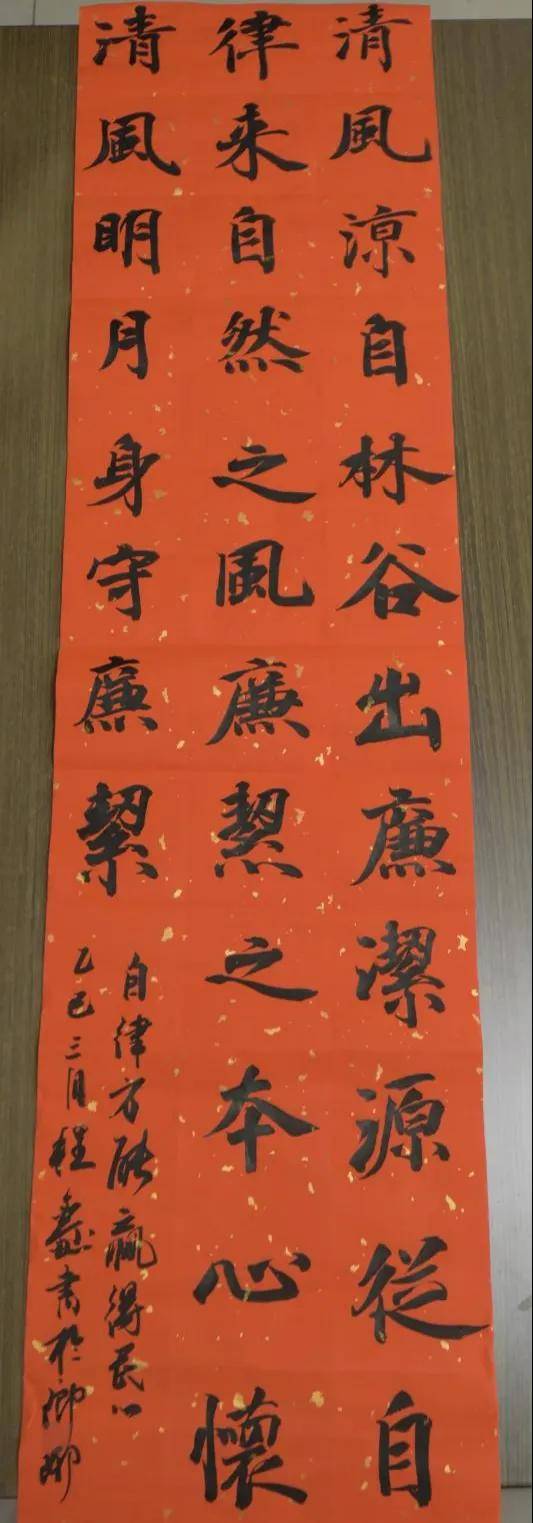 清風涼自林谷出廉潔源從自
律来自然之風廉絜之本心懷
清風明月身守廉絜
自律方能贏得民心
乙巳三月程書於